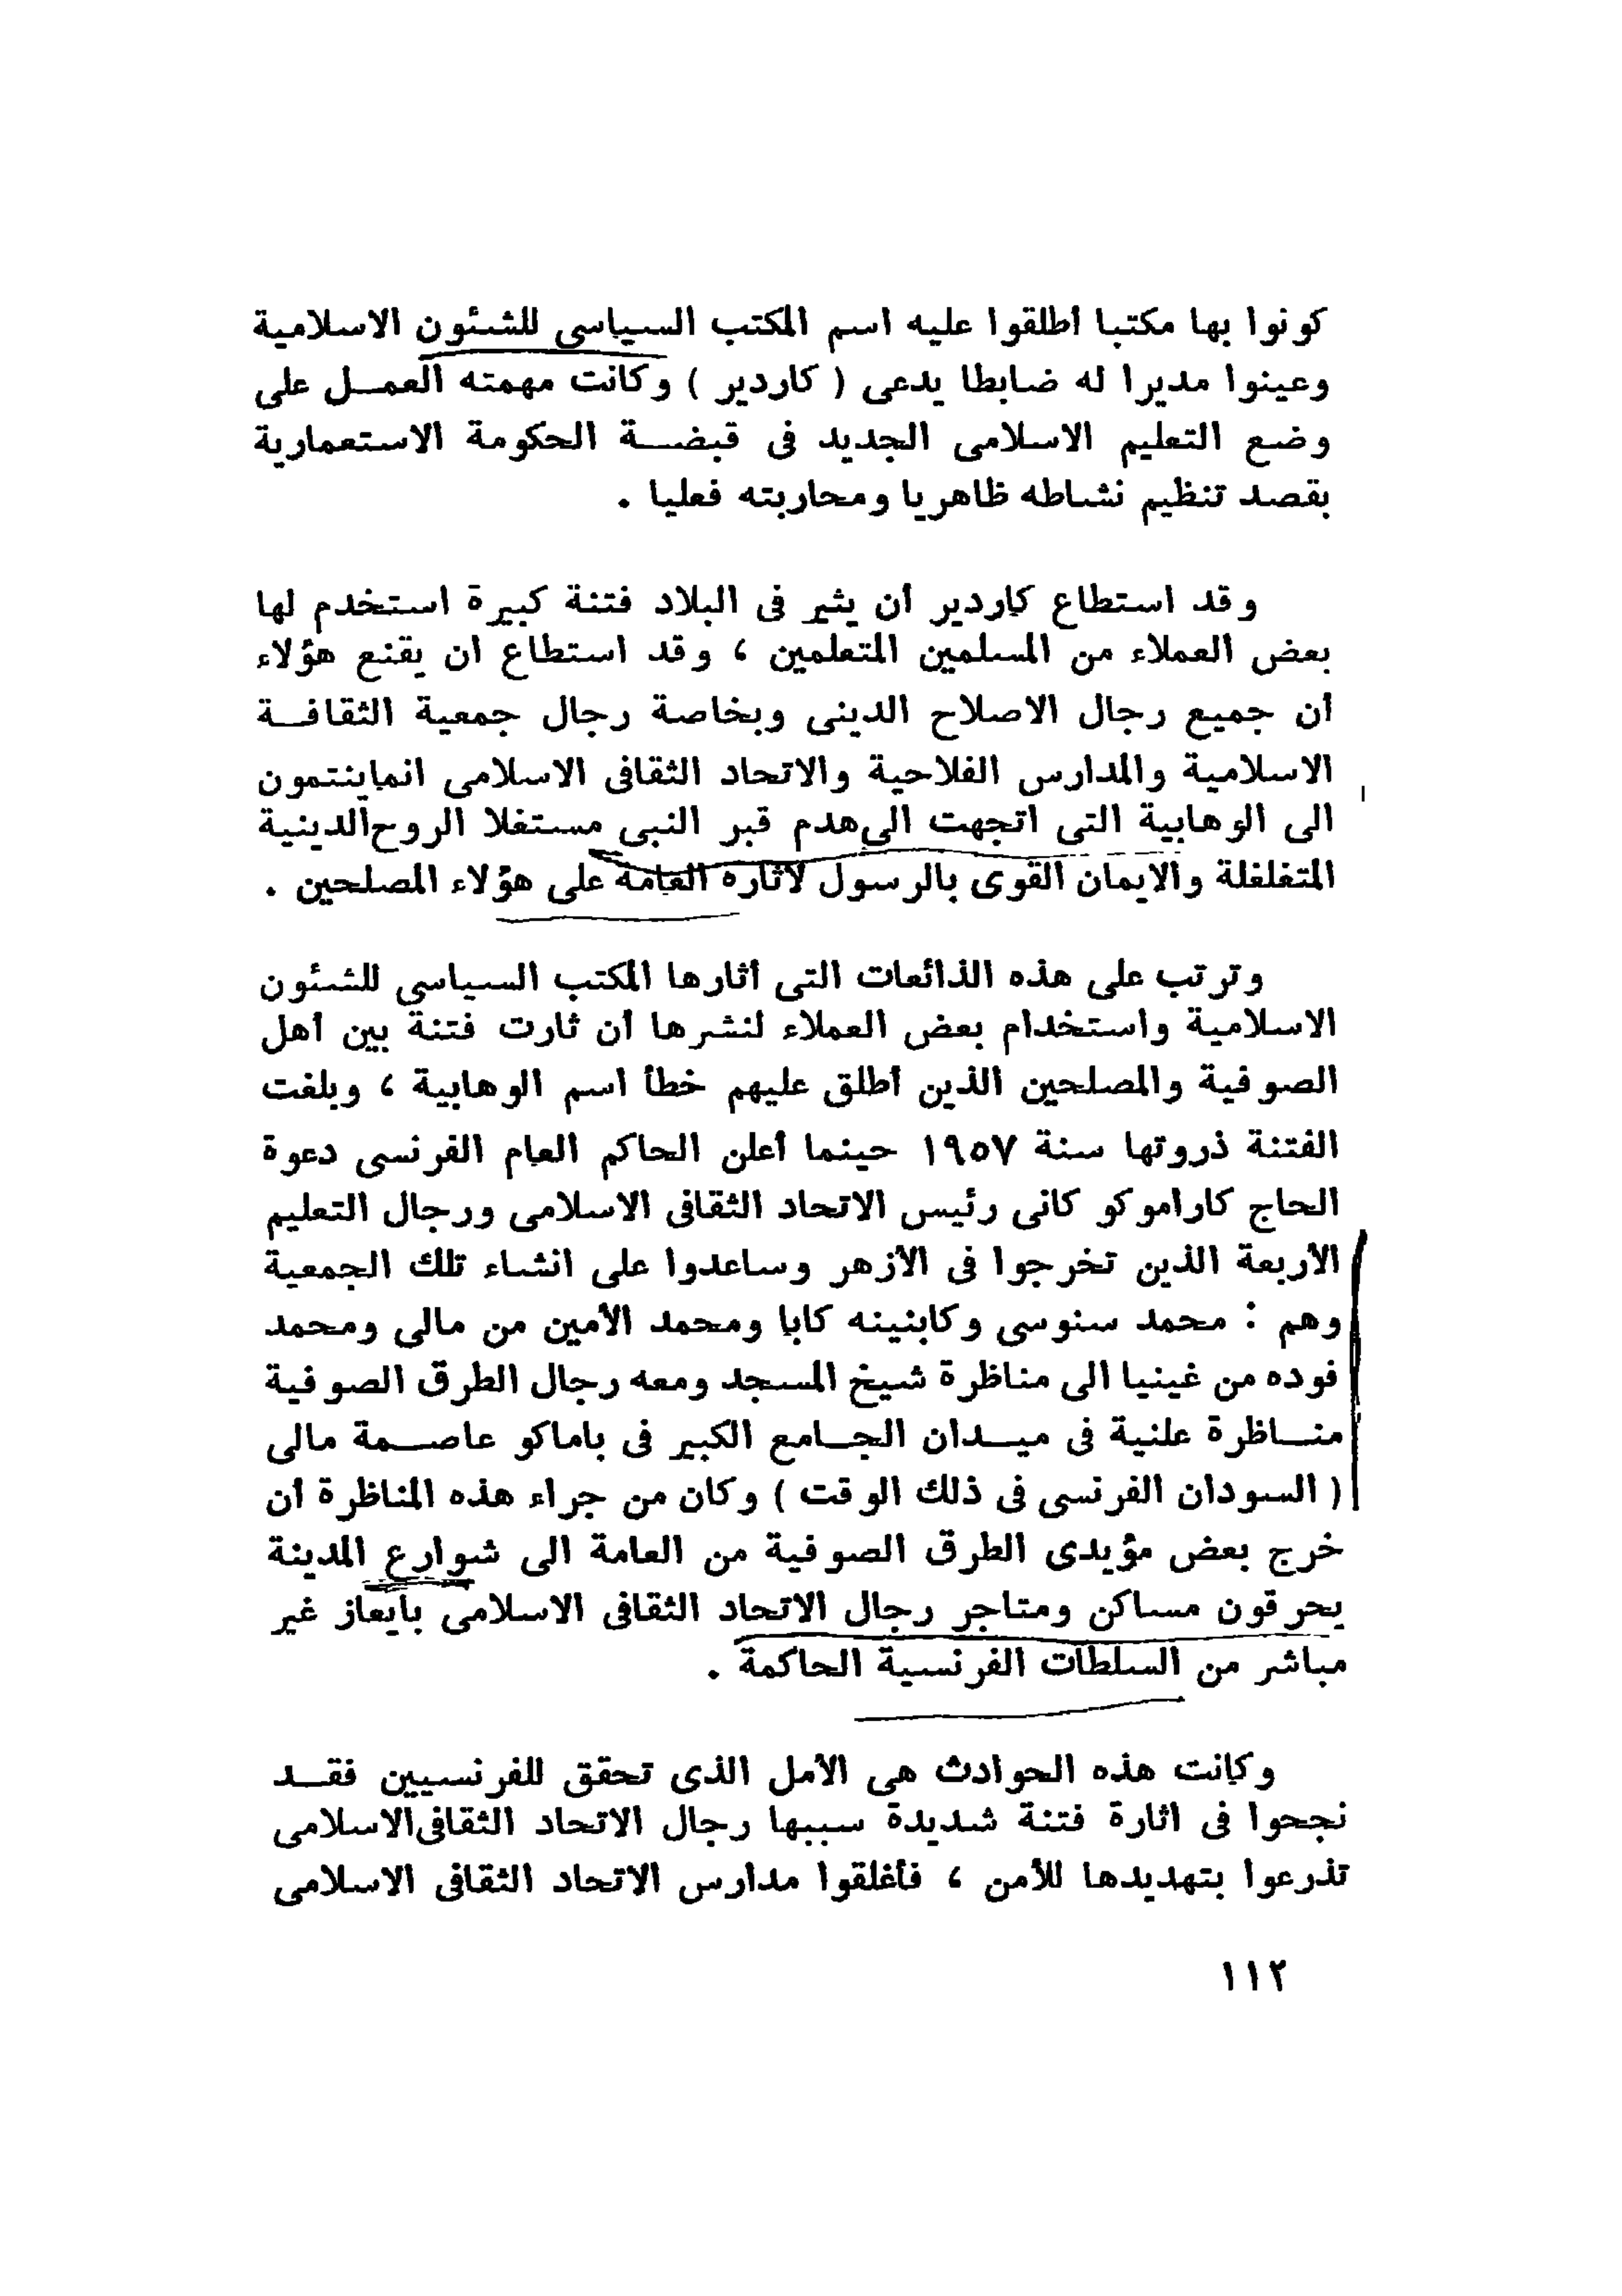 كونوا بها مكتبا أطلقوا عليه اسم المكتب السياسى للشئون الاسلامية
وعينوا مديرا له ضابطا يدعى ( كاردير ) وكانت مهمته العمل على
وضع التعليم الاسلامى الجديد فى قبضة الحكومة الاستعمارية
بقصد تنظيم نشاطه ظاهريا ومحاربته فعليا .
وقد استطاع كاردير أن يثير فى البلاد فتنة كبيرة استخدم لها
بعض العملاء من المسلمين المتعلمين ، وقد استطاع ان يقنع هؤلاء
أن جميع رجال الاصلاح الدينى وبخاصة رجال جمعية الثقافة
الاسلامية والمدارس الفلاحية والاتحاد الثقافى الاسلامى انما ينتمون
الى الوهابية التى اتجهت الى هدم قبر النبى مستغلا الروح الدينية
المتغلغلة والايمان القوى بالرسول لاثارة العامة على هؤلاء المصلحين .
وترتب على هذه الذائعات التى أثارها المكتب السياسى للشئون
الاسلامية واستخدام بعض العملاء لنشرها أن ثارت فتنة بين أهل
الصوفية والمصلحين الذين أطلق عليهم خطأ اسم الوهابية ، وبلغت
الفتنة ذروتها سنة ١٩٥٧ حينما أعلن الحاكم العام الفرنسى دعوة
الحاج كاراموكو كانى رئيس الاتحاد الثقافى الاسلامى ورجال التعليم
الأربعة الذين تخرجوا فى الأزهر وساعدوا على انشاء تلك الجمعية
وهم : محمد سنوسى وكابنينه كابا ومحمد الأمين من مالى ومحمد
فوده من غينيا الى مناظرة شيخ المسجد ومعه رجال الطرق الصوفية
مناظرة علنية فى ميدان الجامع الكبير فى باماكو عاصمة مالى
( السودان الفرنسى فى ذلك الوقت ) وكان من جراء هذه المناظرة أن
خرج بعض مؤيدى الطرق الصوفية من العامة الى شوارع المدينة
يحرقون مساكن ومتاجر رجال الاتحاد الثقافى الاسلامى بايعاز غير
مباشر من السلطات الفرنسية الحاكمة .
وكانت هذه الحوادث هى الأمل الذى تحقق للفرنسيين فقد
نجحوا فى اثارة فتنة شديدة سببها رجال الاتحاد الثقافى الاسلامى
تذرعوا بتهديدها للأمن ، فأغلقوا مدارس الاتحاد الثقافى الاسلامى
١١٢